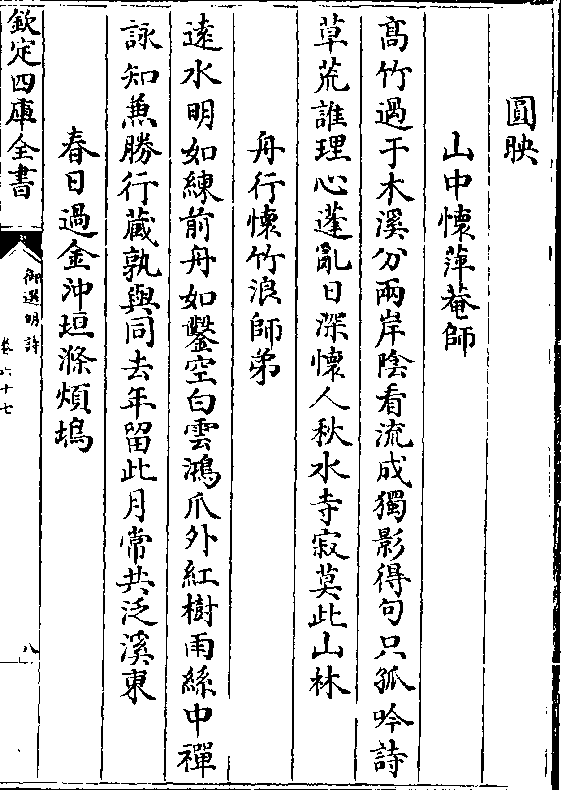 圓映
山中懷萍菴師
高竹過于木溪分兩岸陰看流成獨影得句只孤吟詩
草荒誰理心蓬亂日深懷人秋水寺寂莫此山林
舟行懷竹浪師弟
遠水明如練前舟如鑿空白雲鴻爪外紅樹雨絲中禪
詠知兼勝行蔵孰與同去年留此月常共泛溪東
春日過金沖垣滌煩塢
欽定四庫全書
御選明詩
卷六十七
八